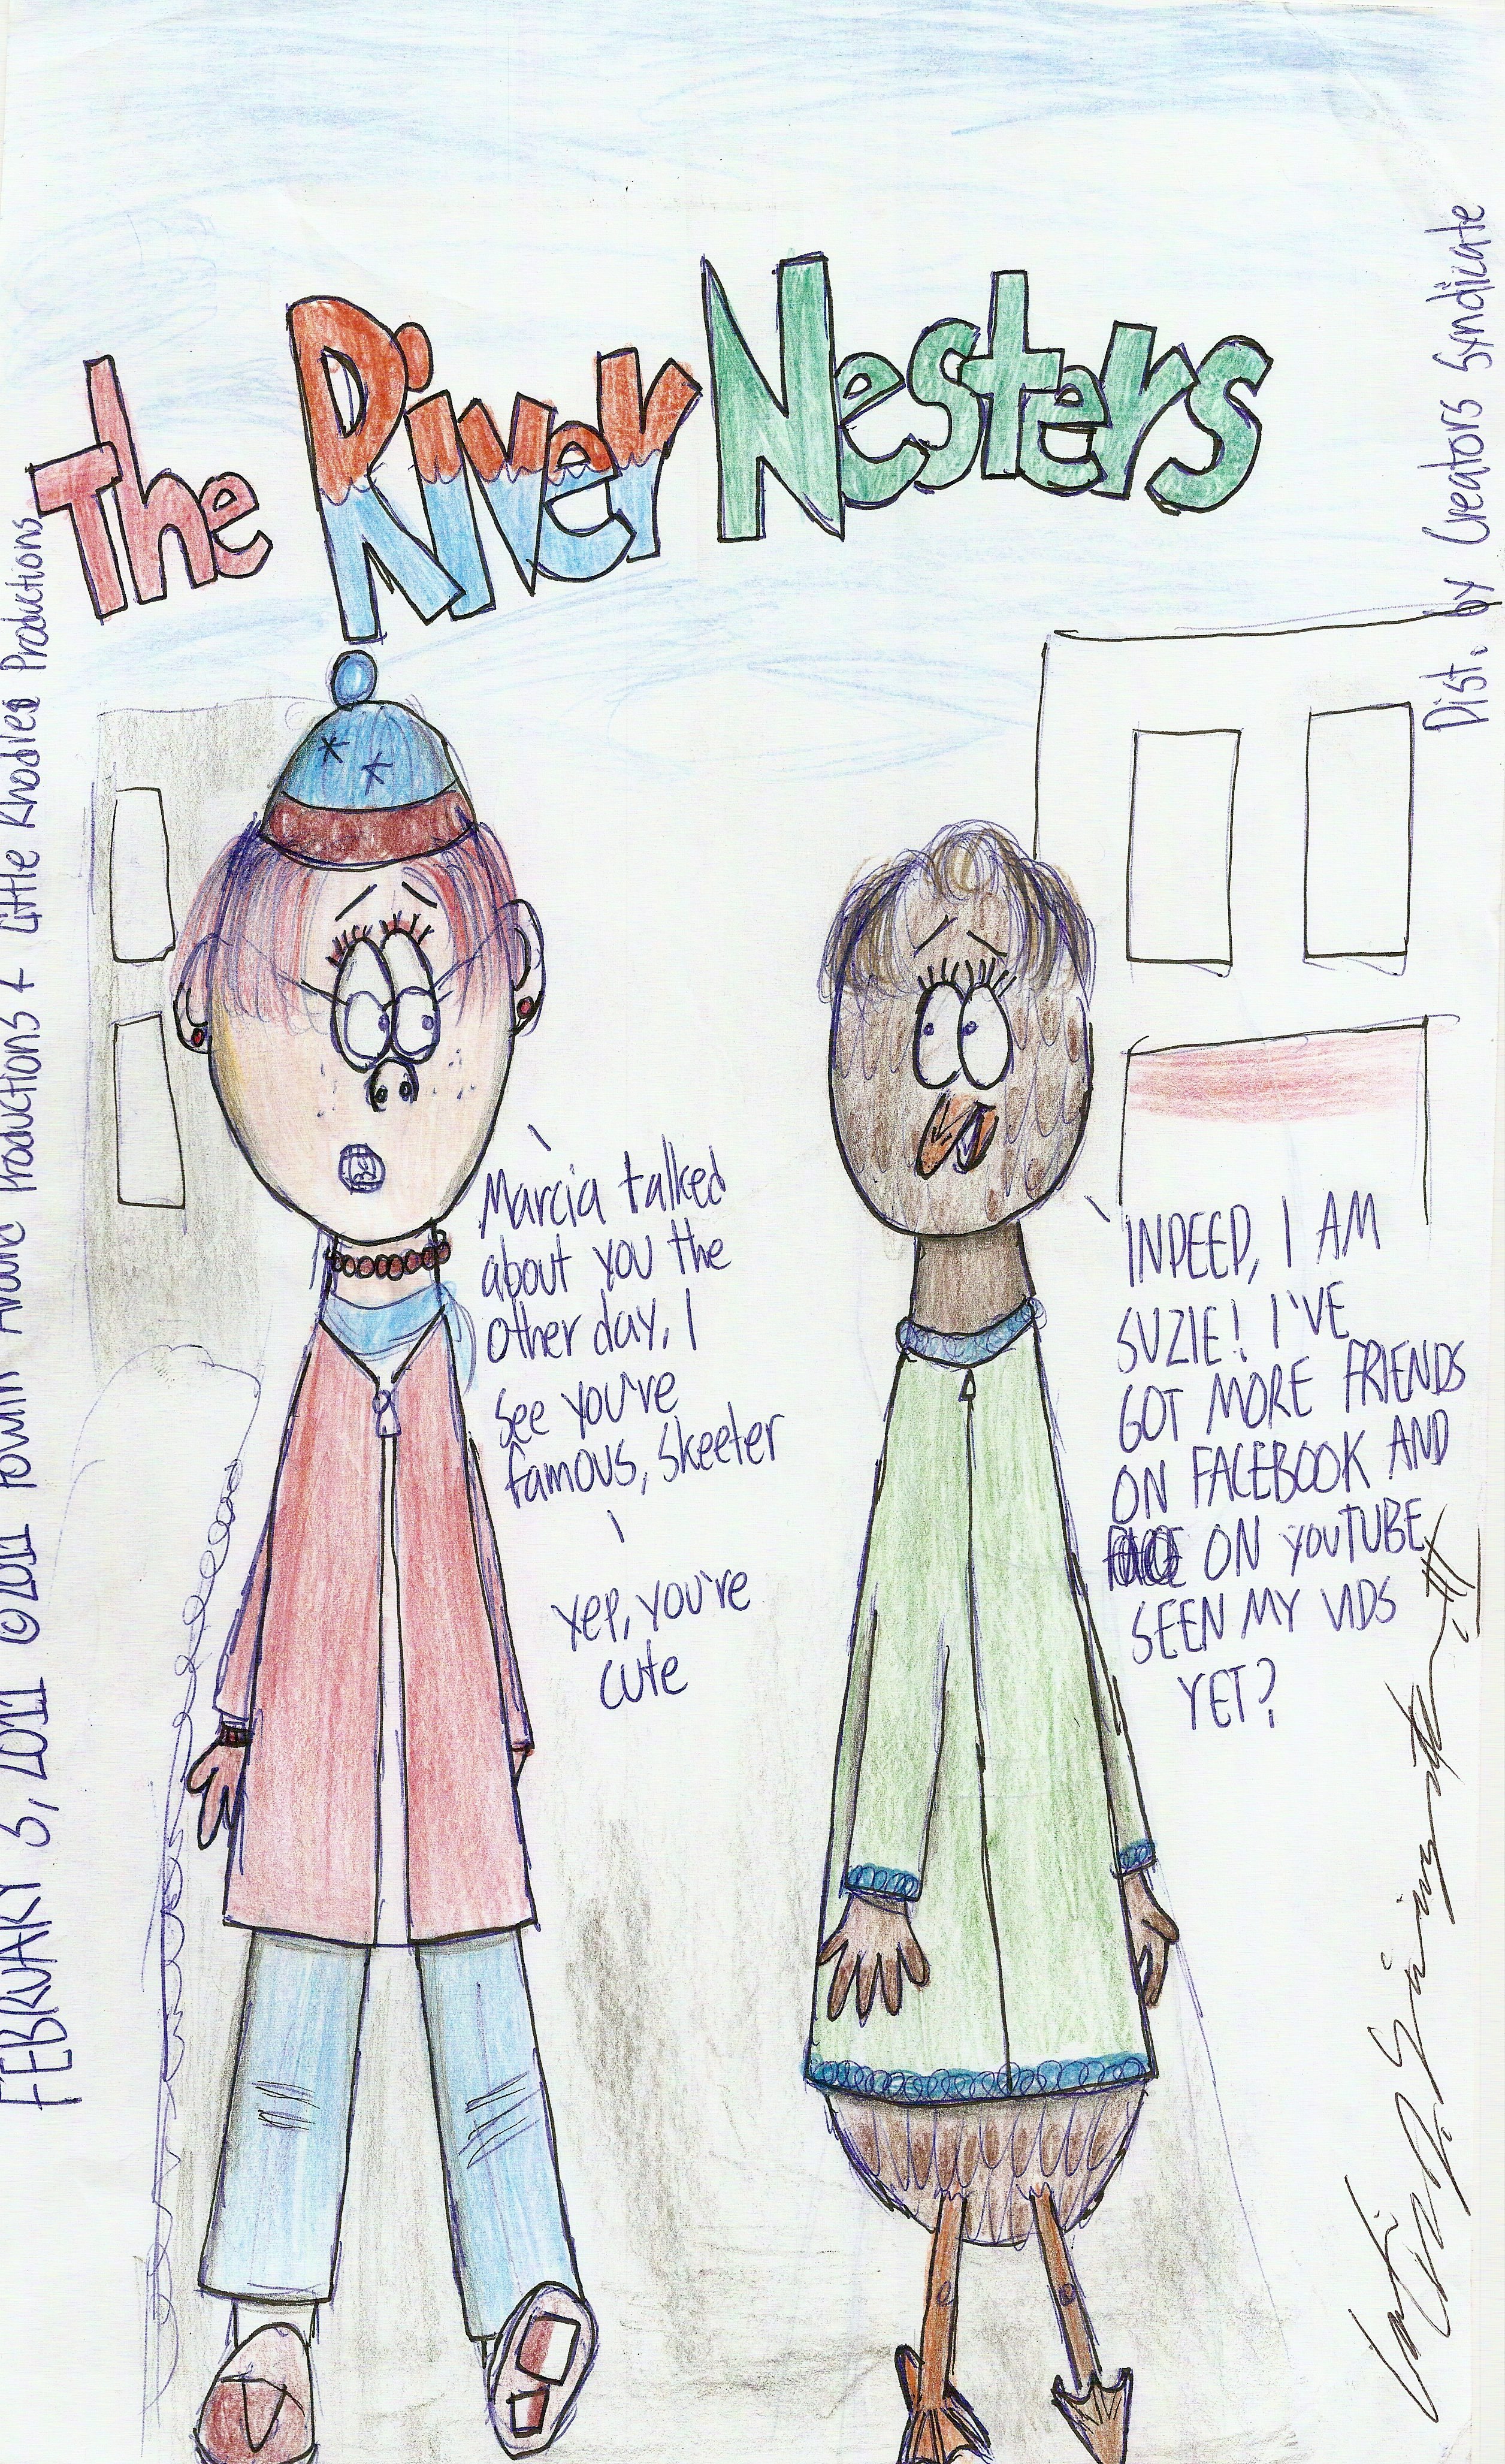 The River Nesters
Marcia talked
about you the
other day, I
see you're
famous, Skeeter
Yep, you're
cute
INDEED, I AM
SUZIE! I'VE
GOT MORE FRIENDS
ON FACEBOOK AND
ON YOUTUBE
SEEN MY VIDS
YET?
Dist. by Creators Syndicate
FEBRUARY 5, 2011 ©2011 Productions & Little Rhodies Productions